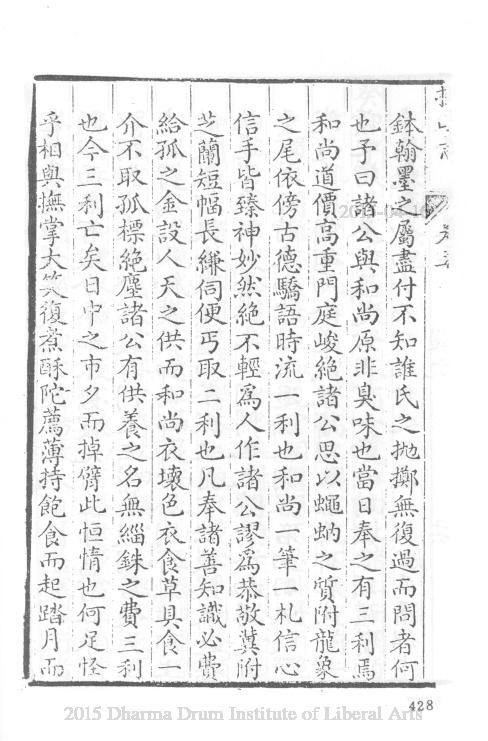 鉢翰墨之屬盡付不知誰氏之拋擲無復過而問者何
也予曰諸公與和尚原非臭味也當日奉之有三利焉
和尚道價高重門庭峻絕諸公思以蠅蚋之質附龍象
之尾依傍古德驕語時流一利也和尚一筆一札信心
信手皆臻神妙然絕不輕爲人作諸公謬爲恭敬冀附
芝蘭短幅長縑伺便丐取二利也凡奉諸善知識必費
給孤之金設人天之供而和尚衣壞色衣食草具食一
介不取孤標絕塵諸公有供養之名無緇銖之費三利
也今三利亡矣日中之市夕而掉臂此恒情也何足怪
乎相與撫掌大笑復煮酥陀薦薄持飽食而起踏月而
428
2015 Dharma Drum Institute of Liberal Arts